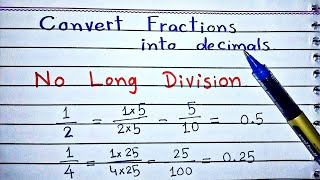 Convert Fractions
into decimals
No Long Division
1/2 = 1×5/2×5 – 5/10 = 0.5
1/4 = 1×25/4×25 – 25/100 = 0.25